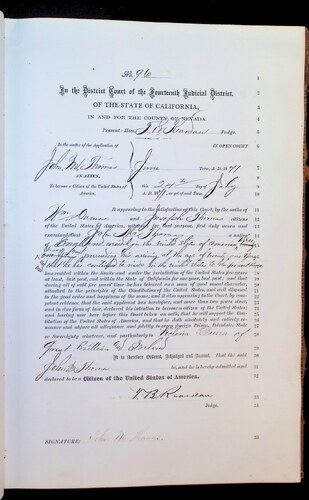 No. 96
In the District Court of the Fourteenth Judicial District.
OF THE STATE OF CALIFORNIA,
IN AND FOR THE COUNTY OF NEVADA.
Present: Hon. T. B. Reardan Judge.
IN OPEN COURT
In the matter of the Application of
John W. Thomas
AN ALIEN,
To become a Citizen of the United States of America.
June Term, A. D. 1871
This day of July
A. D. 1871, as yet of said Term.
It appearing to the satisfaction of this Court, by the oaths of
Wm and Joseph Thomas citizens
of the United States of America, witnesses for that purpose, first duly sworn and
examined, that John W. Thomas a native
of England resided in the United States of America
three years preceding his arriving at the age of twenty one years
that he has continued to reside in the United States to the present
has resided within the limits and under the jurisdiction of the United States five years
at least, last past, and within the State of California for one year, last past; and that
during all of said five years' time he has behaved as a man of good moral character,
attached to the principles of the Constitution of the United States, and well disposed to
the good order and happiness of the same; and it also appearing to the Court, by competent
evidence, that the said applicant has heretofore, and more than two years since,
and in due form of law, declared his intention to become a citizen of the United States,
and having now here before this Court taken an oath, that he will support the Constitution
of the United States of America, and that he doth absolutely and entirely renounce
and abjure all allegiance and fidelity to every foreign Prince, Potentate, State
or Sovereignty whatever, and particularly to Victoria Queen of
Great Brittian & Ireland
It is therefore Ordered, Adjudged and Decreed, That the said
John W. Thomas be, and he is hereby admitted and
declared to be a Citizen of the United States of America.
T. B. Reardan
Judge.
SIGNATURE: John W. Thomas